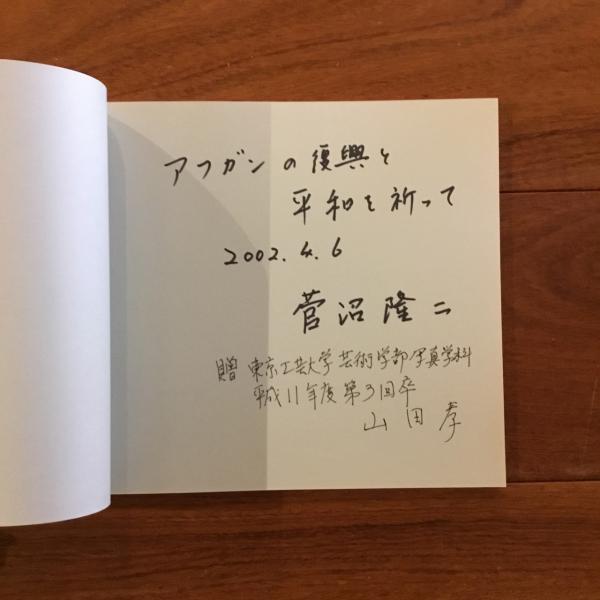 アフガンの復興と
平和を祈って
2002.4.6
菅沼隆二
贈 東京工芸大学芸術学部写真学科
平成11年度第3回卒
山田孝